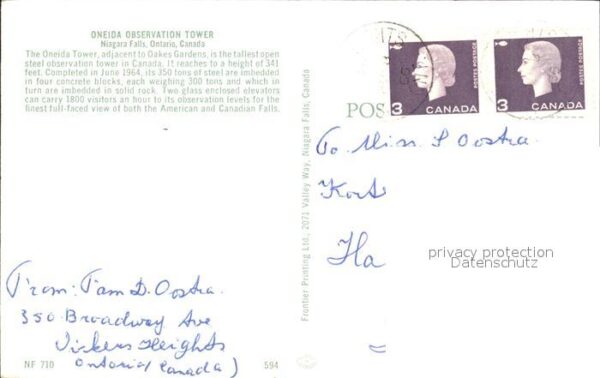 ONEIDA OBSERVATION TOWER
Niagara Falls, Ontario, Canada
The Oneida Tower, adjacent to Oakes Gardens, is the tallest open
steel observation tower in Canada. It reaches to a height of 341
feet. Completed in June 1964, its 350 tons of steel are imbedded
in four concrete blocks, each weighing 300 tons and which in
turn are imbedded in solid rock. Two glass enclosed elevators
can carry 1800 visitors an hour to its observation levels for the
finest full-faced view of both the American and Canadian Falls.
From: Fam D. Oostra.
350 Broadway Ave
Vickers Heights
Ontario (Canada)
NF 710
594
Frontier Printing Ltd., 2071 Valley Way, Niagara Falls, Canada
POS
3 CANADA
POSTES POSTAGE
3 CANADA
POSTES POSTAGE
To Miss S Oostra.
Ha
privacy protection
Datenschutz